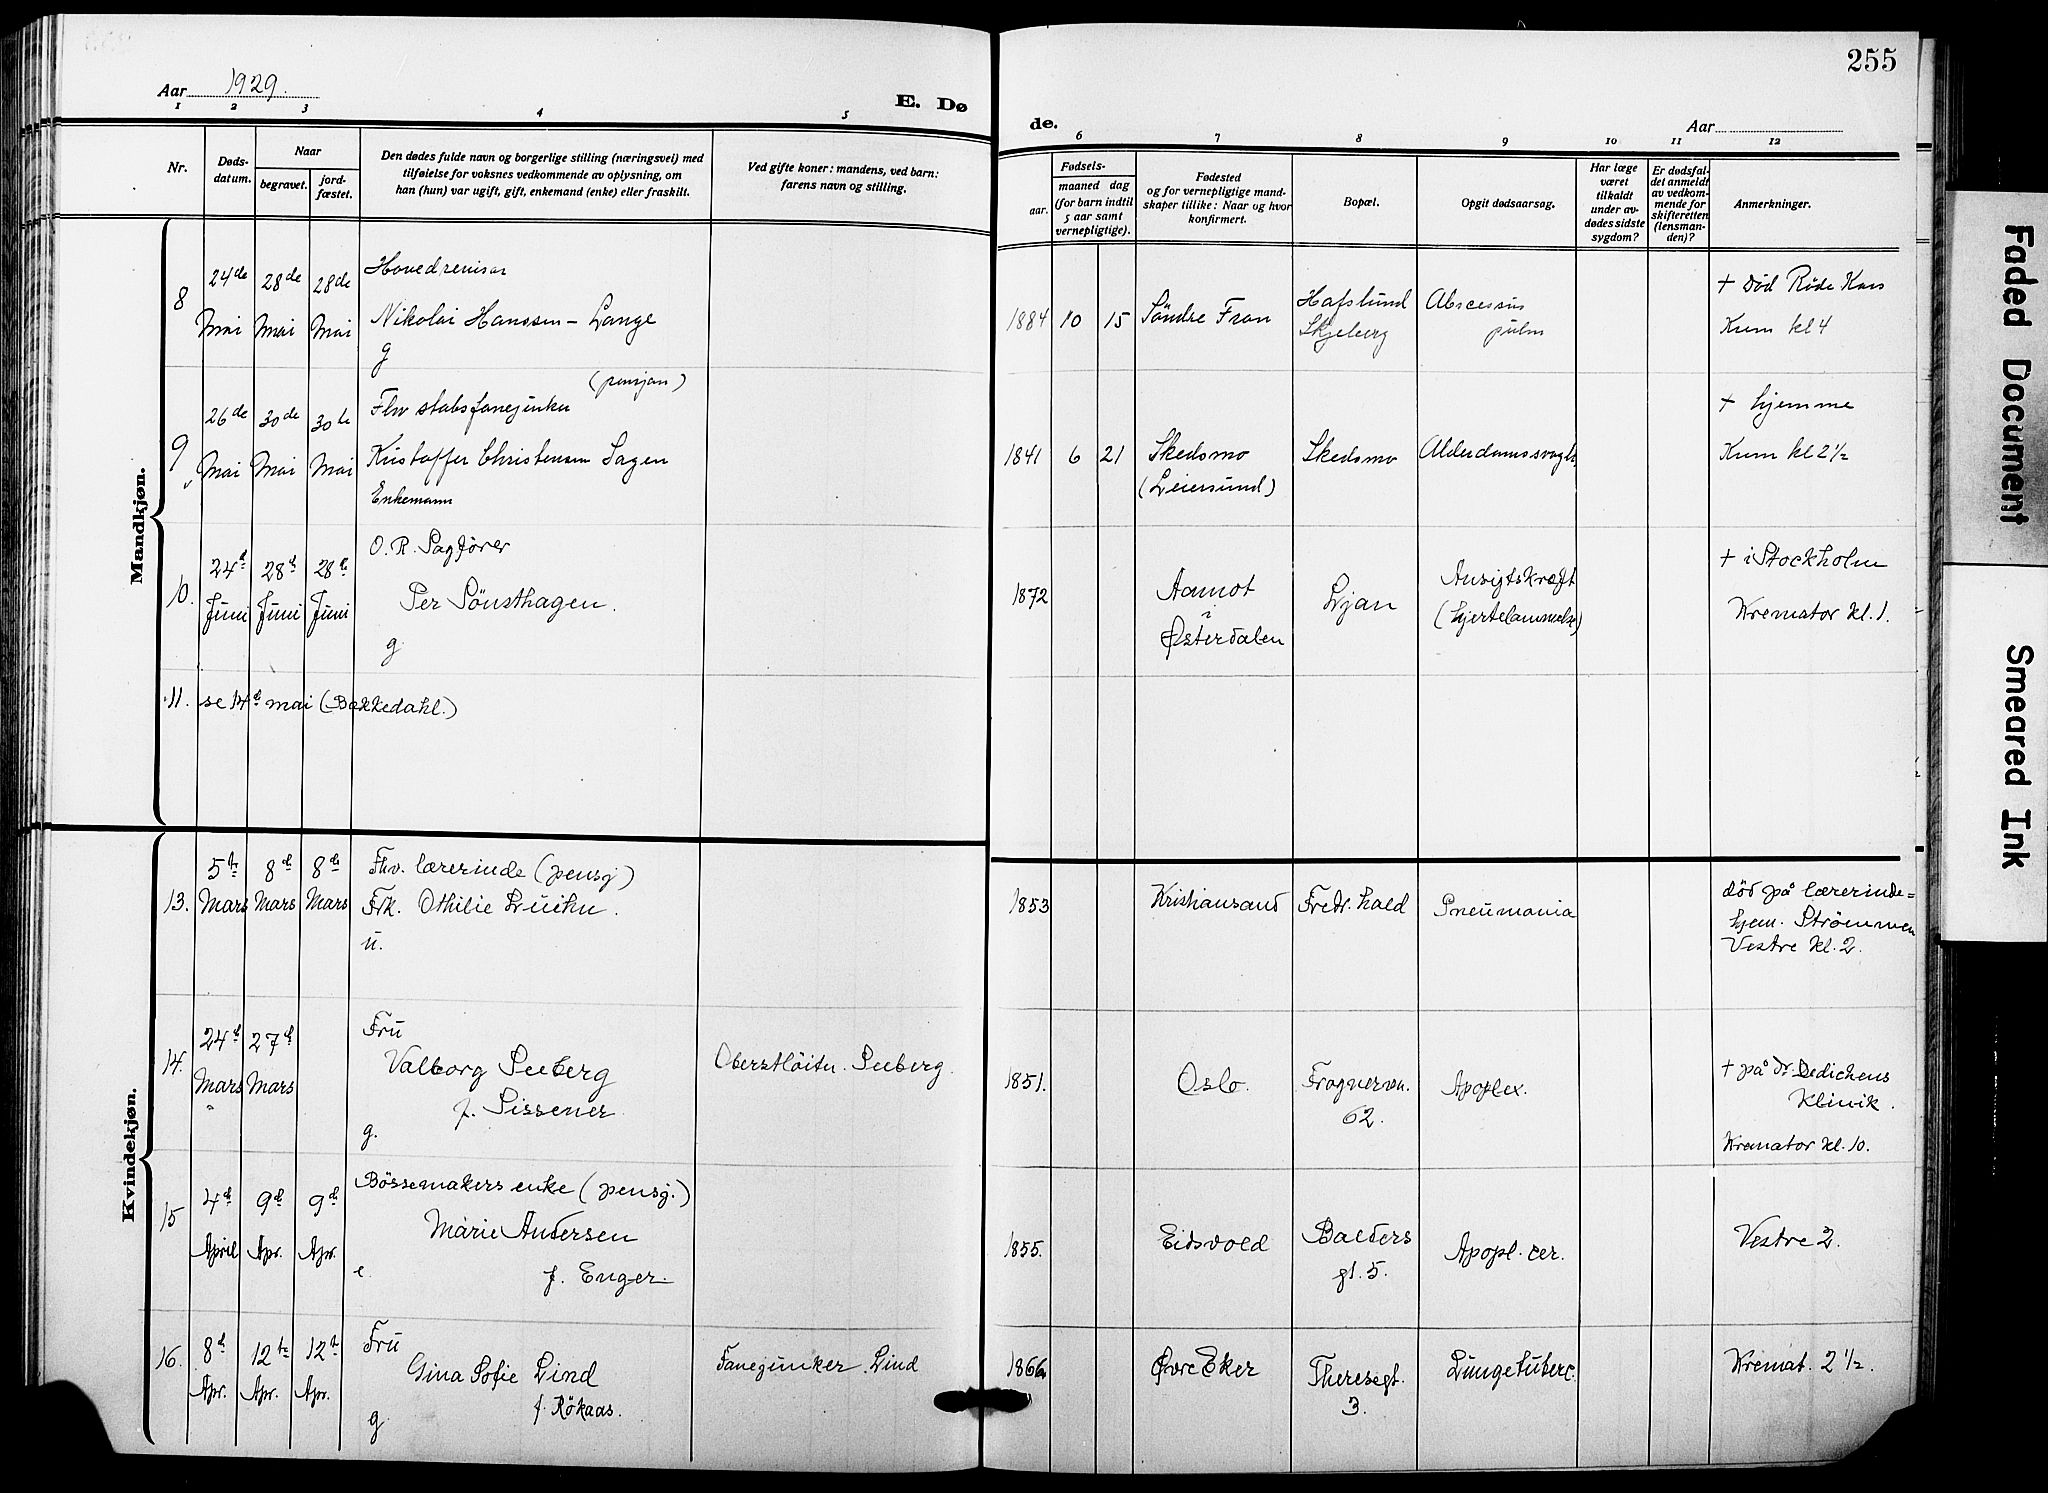 255
Aar 1929.
E. Dø
de.
Aar
1 2 3 4 5
6 7 8 9 10 11 12
Nr.
Døds-
datum.
Naar
begravet.
jord-
fæstet.
Den dødes fulde navn og borgerlige stilling (næringsvei) med
tilføielse for voksnes vedkommende av oplysning, om
han (hun) var ugift, gift, enkemand (enke) eller fraskilt.
Ved gifte koner: mandens, ved barn:
farens navn og stilling.
Fødsels-
aar.
maaned dag
(for barn indtil
5 aar samt
vernepligtige).
Fødested
og for vernepligtige mand-
skaper tillike: Naar og hvor
konfirmert.
Bopæl.
Opgit dødsaarsag.
Har læge
været
tilkaldt
under av-
dødes sidste
sygdom?
Er dødsfal-
det anmeldt
av vedkom-
mende for
skifteretten
(lensman-
den)?
Anmerkninger.
Mandkjøn.
8
24de
Mai
28de
Mai
28de
Mai
Hovedrevisor
Nikolai Hanssen - Lange
g
1884 10 15
Söndre Fron
Hafslund
Skjeberg
Abscessus
pulm
+ Död Röde Kors
Krem kl 4
9
26de
Mai
30de
Mai
30te
Mai
(pensjon)
Fhv stabsfanejunker
Kristoffer Christensen Sagen
Enkemann
1841 6 21
Skedsmo
(Leiersund)
Skedsmo
Alderdomssvagh.
+ hjemme
Krem kl 2 ½
10.
24d
Juni
28d
Juni
28de
Juni
O. R. Sagfører
Per Sönsthagen.
g
1872
Aamot
i
Østerdalen
Ljan
Ansigtskræft
(hjertelammelse)
+ i Stockholm
Kremator kl. 1.
11. se 14d mai (Bakkedahl.)
Kvindekjøn.
13.
5te
Mars
8d
Mars
8de
Mars
Fhv. lærerinde (pensj)
Frk. Othilie
u.
1853
Kristiansand
Fredr.hald
Pneumonia
död på lærerinde=
hjem. Strömmen
Vestre kl. 2.
14.
24d
Mars
27d
Mars
Fru
Valborg Seeberg
f. Sissener
g.
Oberstlöitn. Seeberg.
1851.
Oslo.
Frognervn.
62.
Apoplex.
+ på dr. Dedichens
Klinik.
Kremator kl. 10.
15
4d
April
9d
Apr.
9d
Apr.
Bössemakers enke (pensj.)
Marie Andersen
e. f. Enger.
1855.
Eidsvold
Balders
gt. 5.
Apopl. cer.
Vestre 2.
16.
8d
Apr.
12te
Apr.
12te
Apr.
Fru
Gina Sofie Lind
f. Rökaas.
g
Fanejunker Lind
1866
Øvre Eker
Theresegt.
3.
Lungetuberc.
Kremat. 2 ½.
Faded Document
Smeared Ink